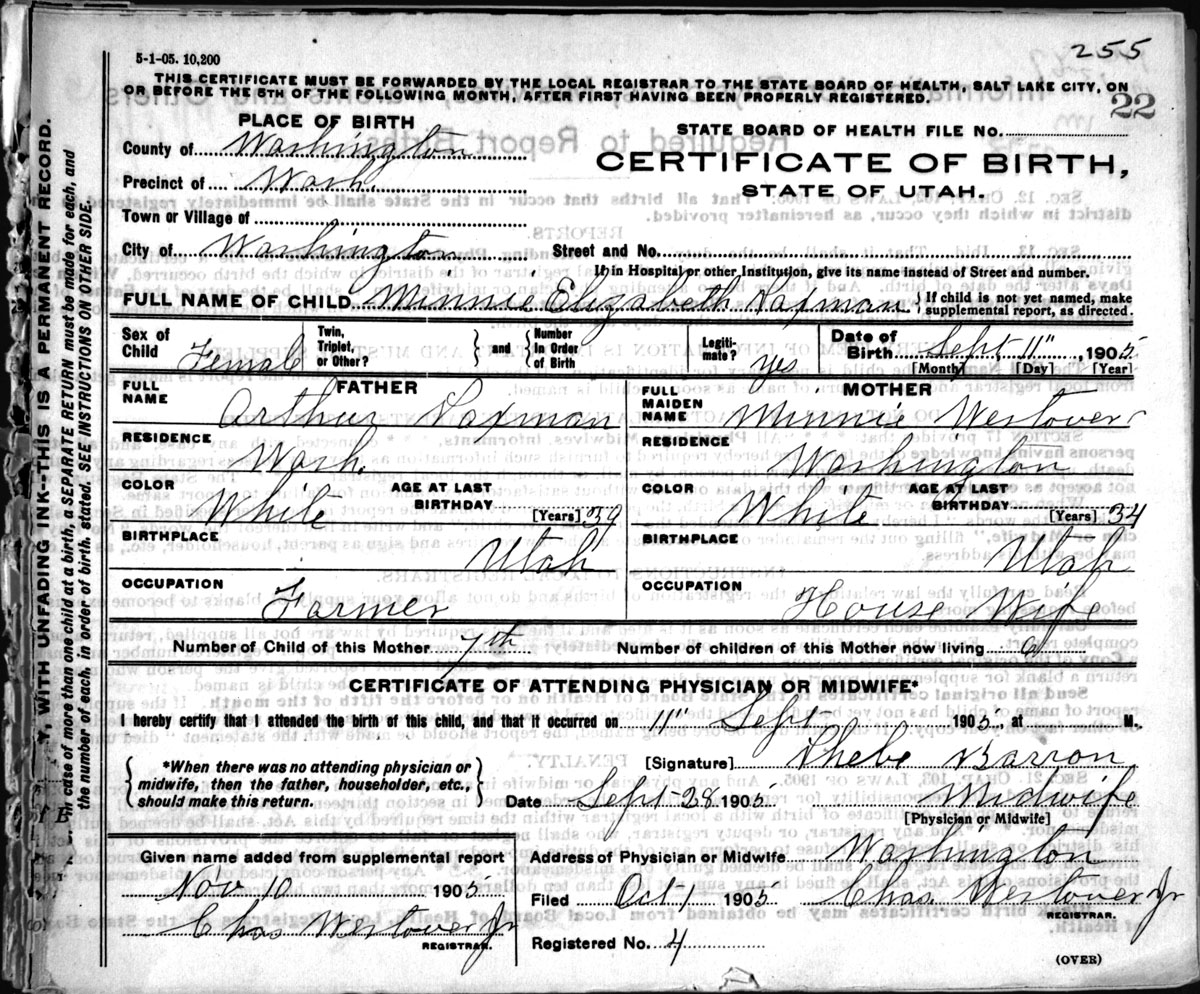 255
5-1-05. 10,200
THIS CERTIFICATE MUST BE FORWARDED BY THE LOCAL REGISTRAR TO THE STATE BOARD OF HEALTH, SALT LAKE CITY, ON
OR BEFORE THE 5TH OF THE FOLLOWING MONTH, AFTER FIRST HAVING BEEN PROPERLY REGISTERED.
22
PLACE OF BIRTH
STATE BOARD OF HEALTH FILE NO.
County of Washington
CERTIFICATE OF BIRTH,
Precinct of Wash.
STATE OF UTAH.
Town or Village of
City of Washington Street and No.
If in Hospital or other Institution, give its name instead of Street and number.
FULL NAME OF CHILD Minnie Elizabeth Paxman { If child is not yet named, make
supplemental report, as directed.
Sex of Child Female
Twin, Triplet, or Other? } and { Number in Order of Birth
Legitimate? yes
Date of Birth Sept. 11", 1905
[Month] [Day] [Year]
FATHER
FULL NAME Arthur Paxman
RESIDENCE Wash.
COLOR White AGE AT LAST BIRTHDAY [Years] 39
BIRTHPLACE Utah
OCCUPATION Farmer
MOTHER
FULL MAIDEN NAME Minnie Westover
RESIDENCE Washington
COLOR White AGE AT LAST BIRTHDAY [Years] 34
BIRTHPLACE Utah
OCCUPATION House Wife
Number of Child of this Mother 7th Number of children of this Mother now living 6
CERTIFICATE OF ATTENDING PHYSICIAN OR MIDWIFE*
I hereby certify that I attended the birth of this child, and that it occurred on 11" Sept 1905, at M.
{ *When there was no attending physician or
midwife, then the father, householder, etc.,
should make this return. }
[Signature] Phebe Barron
Date Sept 28 1905 Midwife
[Physician or Midwife]
Given name added from supplemental report
Nov 10 1905
Chas Westover Jr
REGISTRAR.
Address of Physician or Midwife Washington
Filed Oct 1 1905 Chas. Westover Jr
REGISTRAR.
Registered No. 4
(OVER)
Y, WITH UNFADING INK--THIS IS A PERMANENT RECORD.
In case of more than one child at a birth, a SEPARATE RETURN must be made for each, and
the number of each, in order of birth, stated. SEE INSTRUCTIONS ON OTHER SIDE.